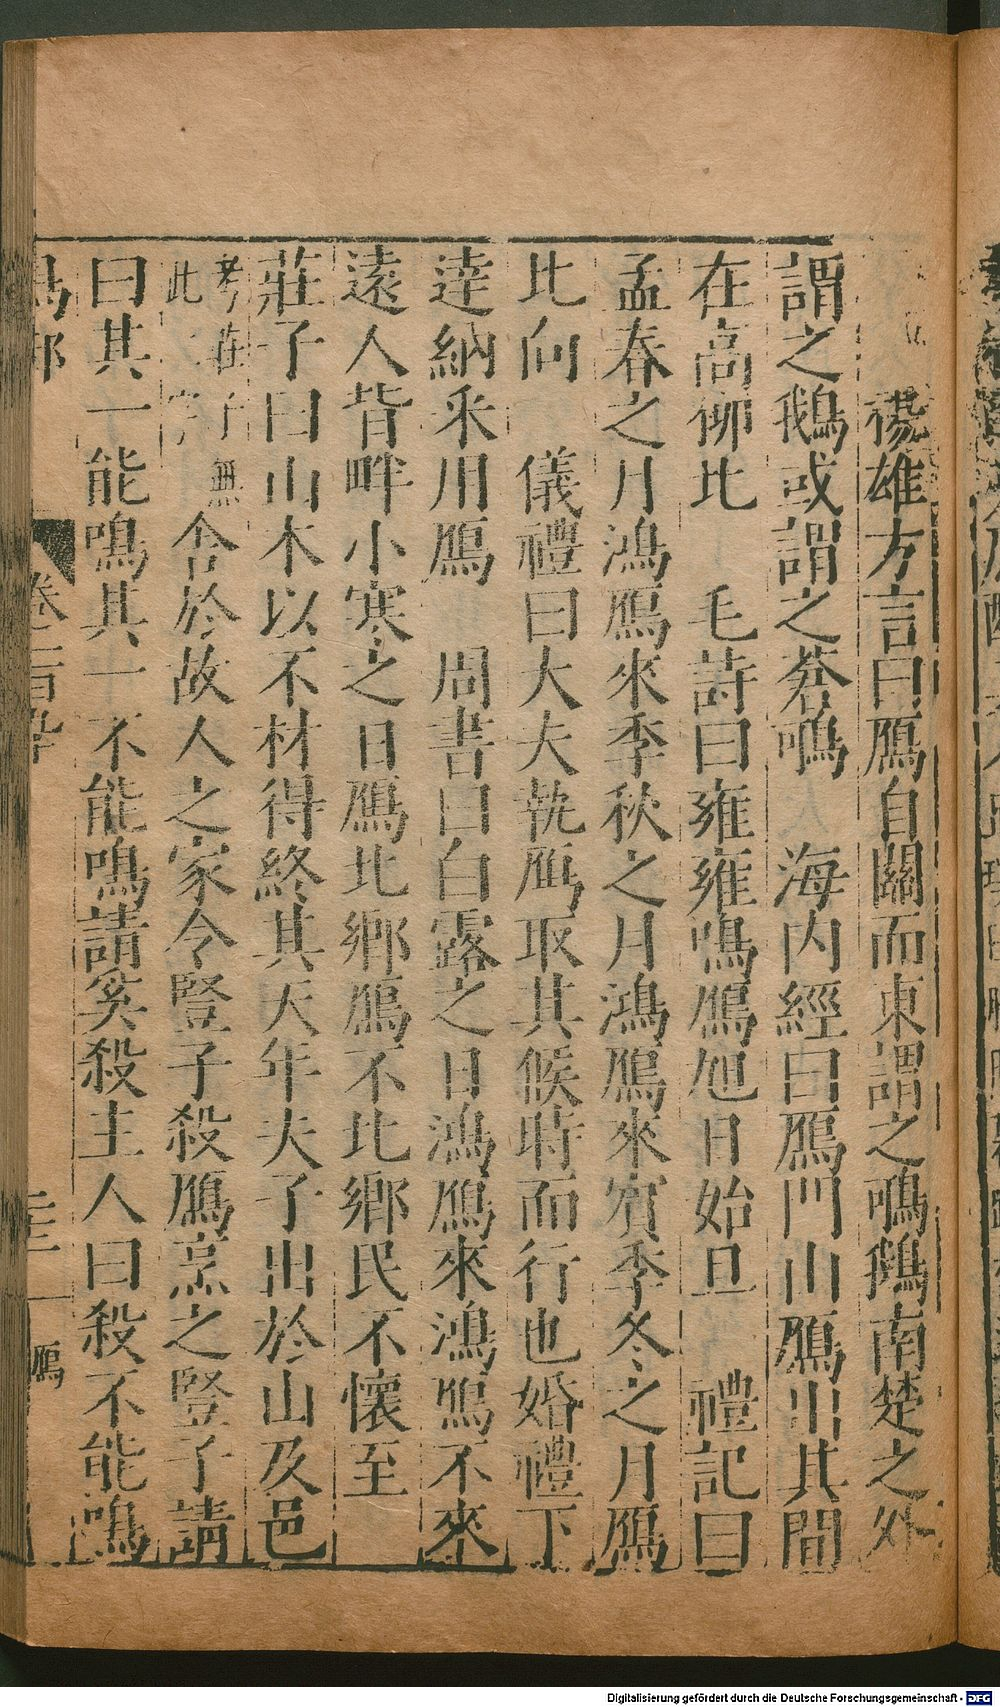 楊雄方言曰鴈自關而東謂之鴚䳘南楚之外
謂之鵝或謂之蒼鴚　海内經曰鴈門山鴈出其間
在高柳北　毛詩曰雍雍鳴鴈旭日始旦　禮記曰
孟春之月鴻鴈來季秋之月鴻鴈來賓季冬之月鴈
北向　儀禮曰大夫執鴈取其候時而行也婚禮下
逹納采用鴈　周書曰白露之日鴻鴈來鴻鴈不來
遠人背畔小寒之日鴈北鄉鴈不北鄉民不懷至
莊子曰山木以不材得終其天年夫子出於山及邑
考莊子無
此二字
舎於故人之家令豎子殺鴈烹之豎子請
曰其一能鳴其一不能鳴請奚殺主人曰殺不能鳴
鳥部
卷
鴈
Digitalisierung gefördert durch die Deutsche Forschungsgemeinschaft - DFG